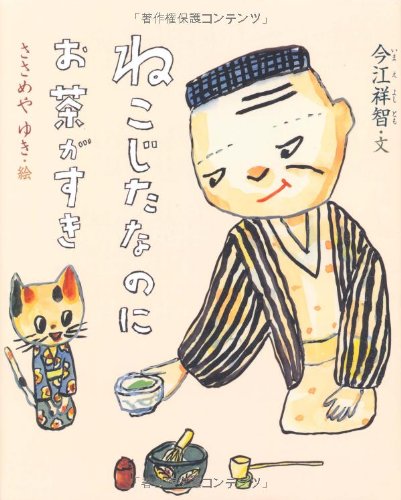 「著作権保護コンテンツ」
ねこじたなのに
お茶がすき
今江祥智・文
いま え よし とも
ささめや ゆき・絵
「著作権保護コンテンツ」